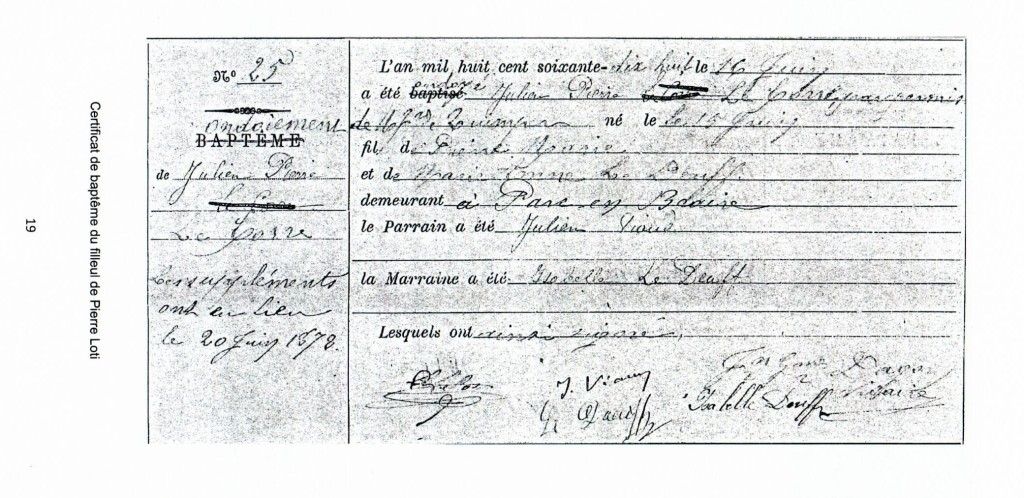 19
Certificat de baptême du filleul de Pierre Loti
N° 25
ondoiement
BAPTÊME
de Julien Pierre
Le Corre
Les suppléments
ont eu lieu
le 20 Juin 1878.
L'an mil, huit cent soixante-dix huit le 16 Juin
a été baptisé ondoyé Julien Pierre Le Corre, par permis
de Mgr de Quimper né le 15 Juin
fils de Pierre
et de Marie Anne Le Doeuff
demeurant à Parc en
le Parrain a été Julien Viaud
la Marraine a été Isabelle Le Doeuff
Lesquels ont ainsi signé.
J. Viaud
Isabelle Doeuff
vicaire